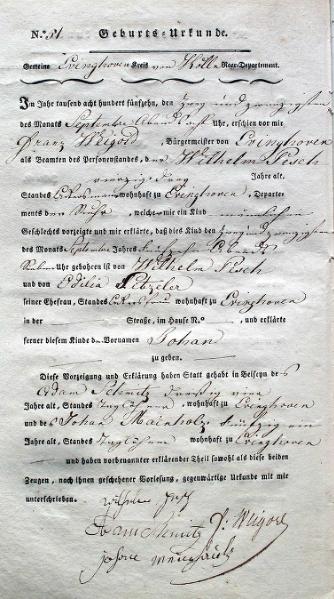 N.º 51 Geburts-Urkunde.
Gemeine Evinghoven Kreis von Kölln Roer-Departement.
Im Jahre tausend acht hundert fünfzehn, den zwey und zwanzigsten
des Monats Septembre Abends Uhr, erschien vor mir
Franz Weigold, Bürgermeister von Evinghoven
als Beamten des Personenstandes, der Wilhelm Pesch
vierzig Jahre alt,
Standes Ackersmann wohnhaft zu Evinghoven, Departe-
ments der Ruhr, welcher mir ein Kind männlichen
Geschlechts vorzeigte und mir erklärte, daß dies Kind den zwey und zwanzigsten
des Monats Septembre Jahres fünfzehn Abends
Uhr gebohren ist von Wilhelm Pesch
und von Odilia
seiner Ehefrau, Standes wohnhaft zu Evinghoven
in der Straße, im Hause N.º , und erklärte
ferner diesem Kinde den Vornamen Johan
zu geben.
Diese Vorzeigung und Erklärung haben Statt gehabt in Beiseyn des
Adam Schmitz dreißig
Jahre alt, Standes Taglöhner wohnhaft zu Evinghoven
und des Johan
Jahre alt, Standes Taglöhner wohnhaft zu Evinghoven
und haben vorbenannter erklärender Theil sowohl als diese beiden
Zeugen, nach ihnen geschehener Vorlesung, gegenwärtige Urkunde mit mir
unterschrieben.
Adam Schmitz F. Weigold